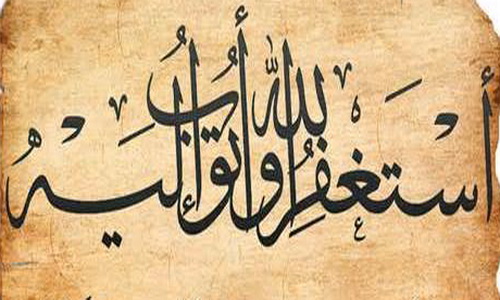 أستغفر الله وأتوب إليه